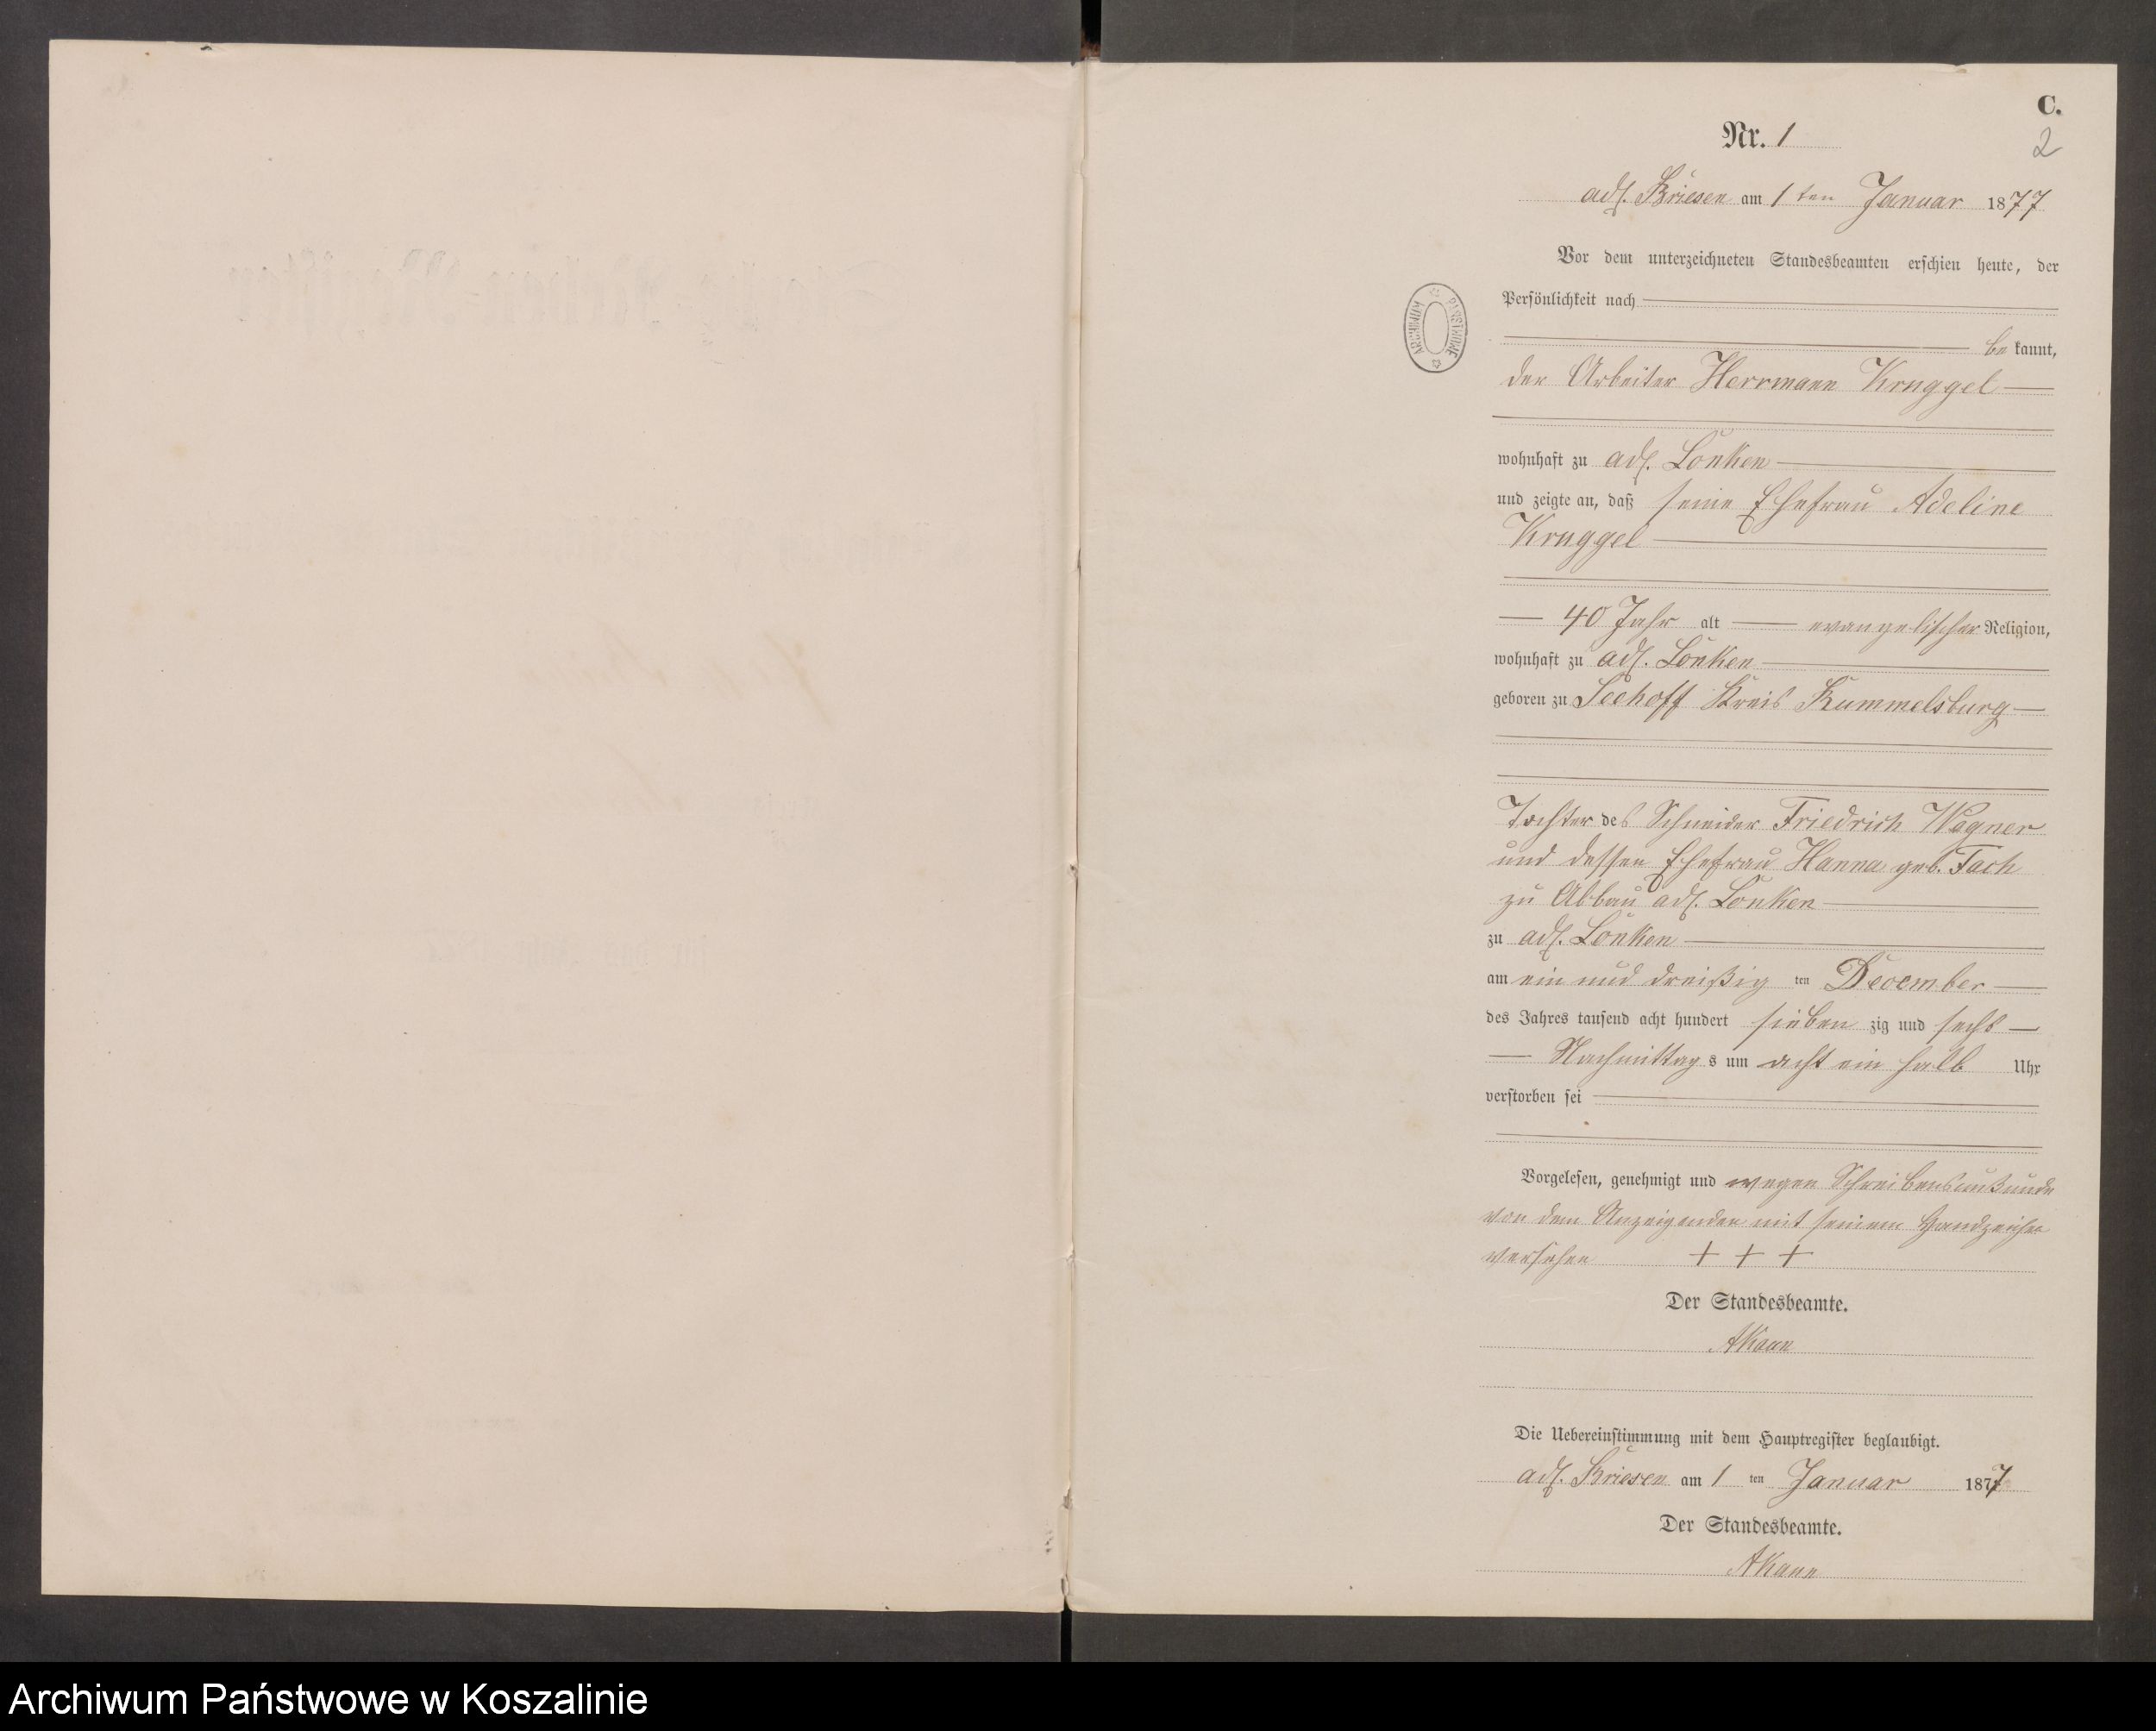 C.
Nr. 1
2
adl. Briesen am 1 ten Januar 1877
Vor dem unterzeichneten Standesbeamten erschien heute, der
Persönlichkeit nach
be kannt,
der Arbeiter Herrmann Kruggel
wohnhaft zu adl. Lonken
und zeigte an, daß seine Ehefrau Adeline
Kruggel
40 Jahr alt evangelischer Religion,
wohnhaft zu adl. Lonken
geboren zu Seehoff Kreis Rummelsburg
Tochter des Schneider Friedrich Wagner
und dessen Ehefrau Hanna geb. Tach
zu Abbau adl. Lonken
zu adl. Lonken
am ein und dreißig ten December
des Jahres tausend acht hundert sieben zig und sechs
Nachmittag s um acht ein halb Uhr
verstorben sei
Vorgelesen, genehmigt und wegen Schreibensunkunde
von dem Anzeigenden mit seinem Handzeichen
versehen + + +
Der Standesbeamte.
Die Uebereinstimmung mit dem Hauptregister beglaubigt.
adl. Briesen am 1 ten Januar 1877
Der Standesbeamte.
ARCHIWUM PAŃSTWOWE
Archiwum Państwowe w Koszalinie